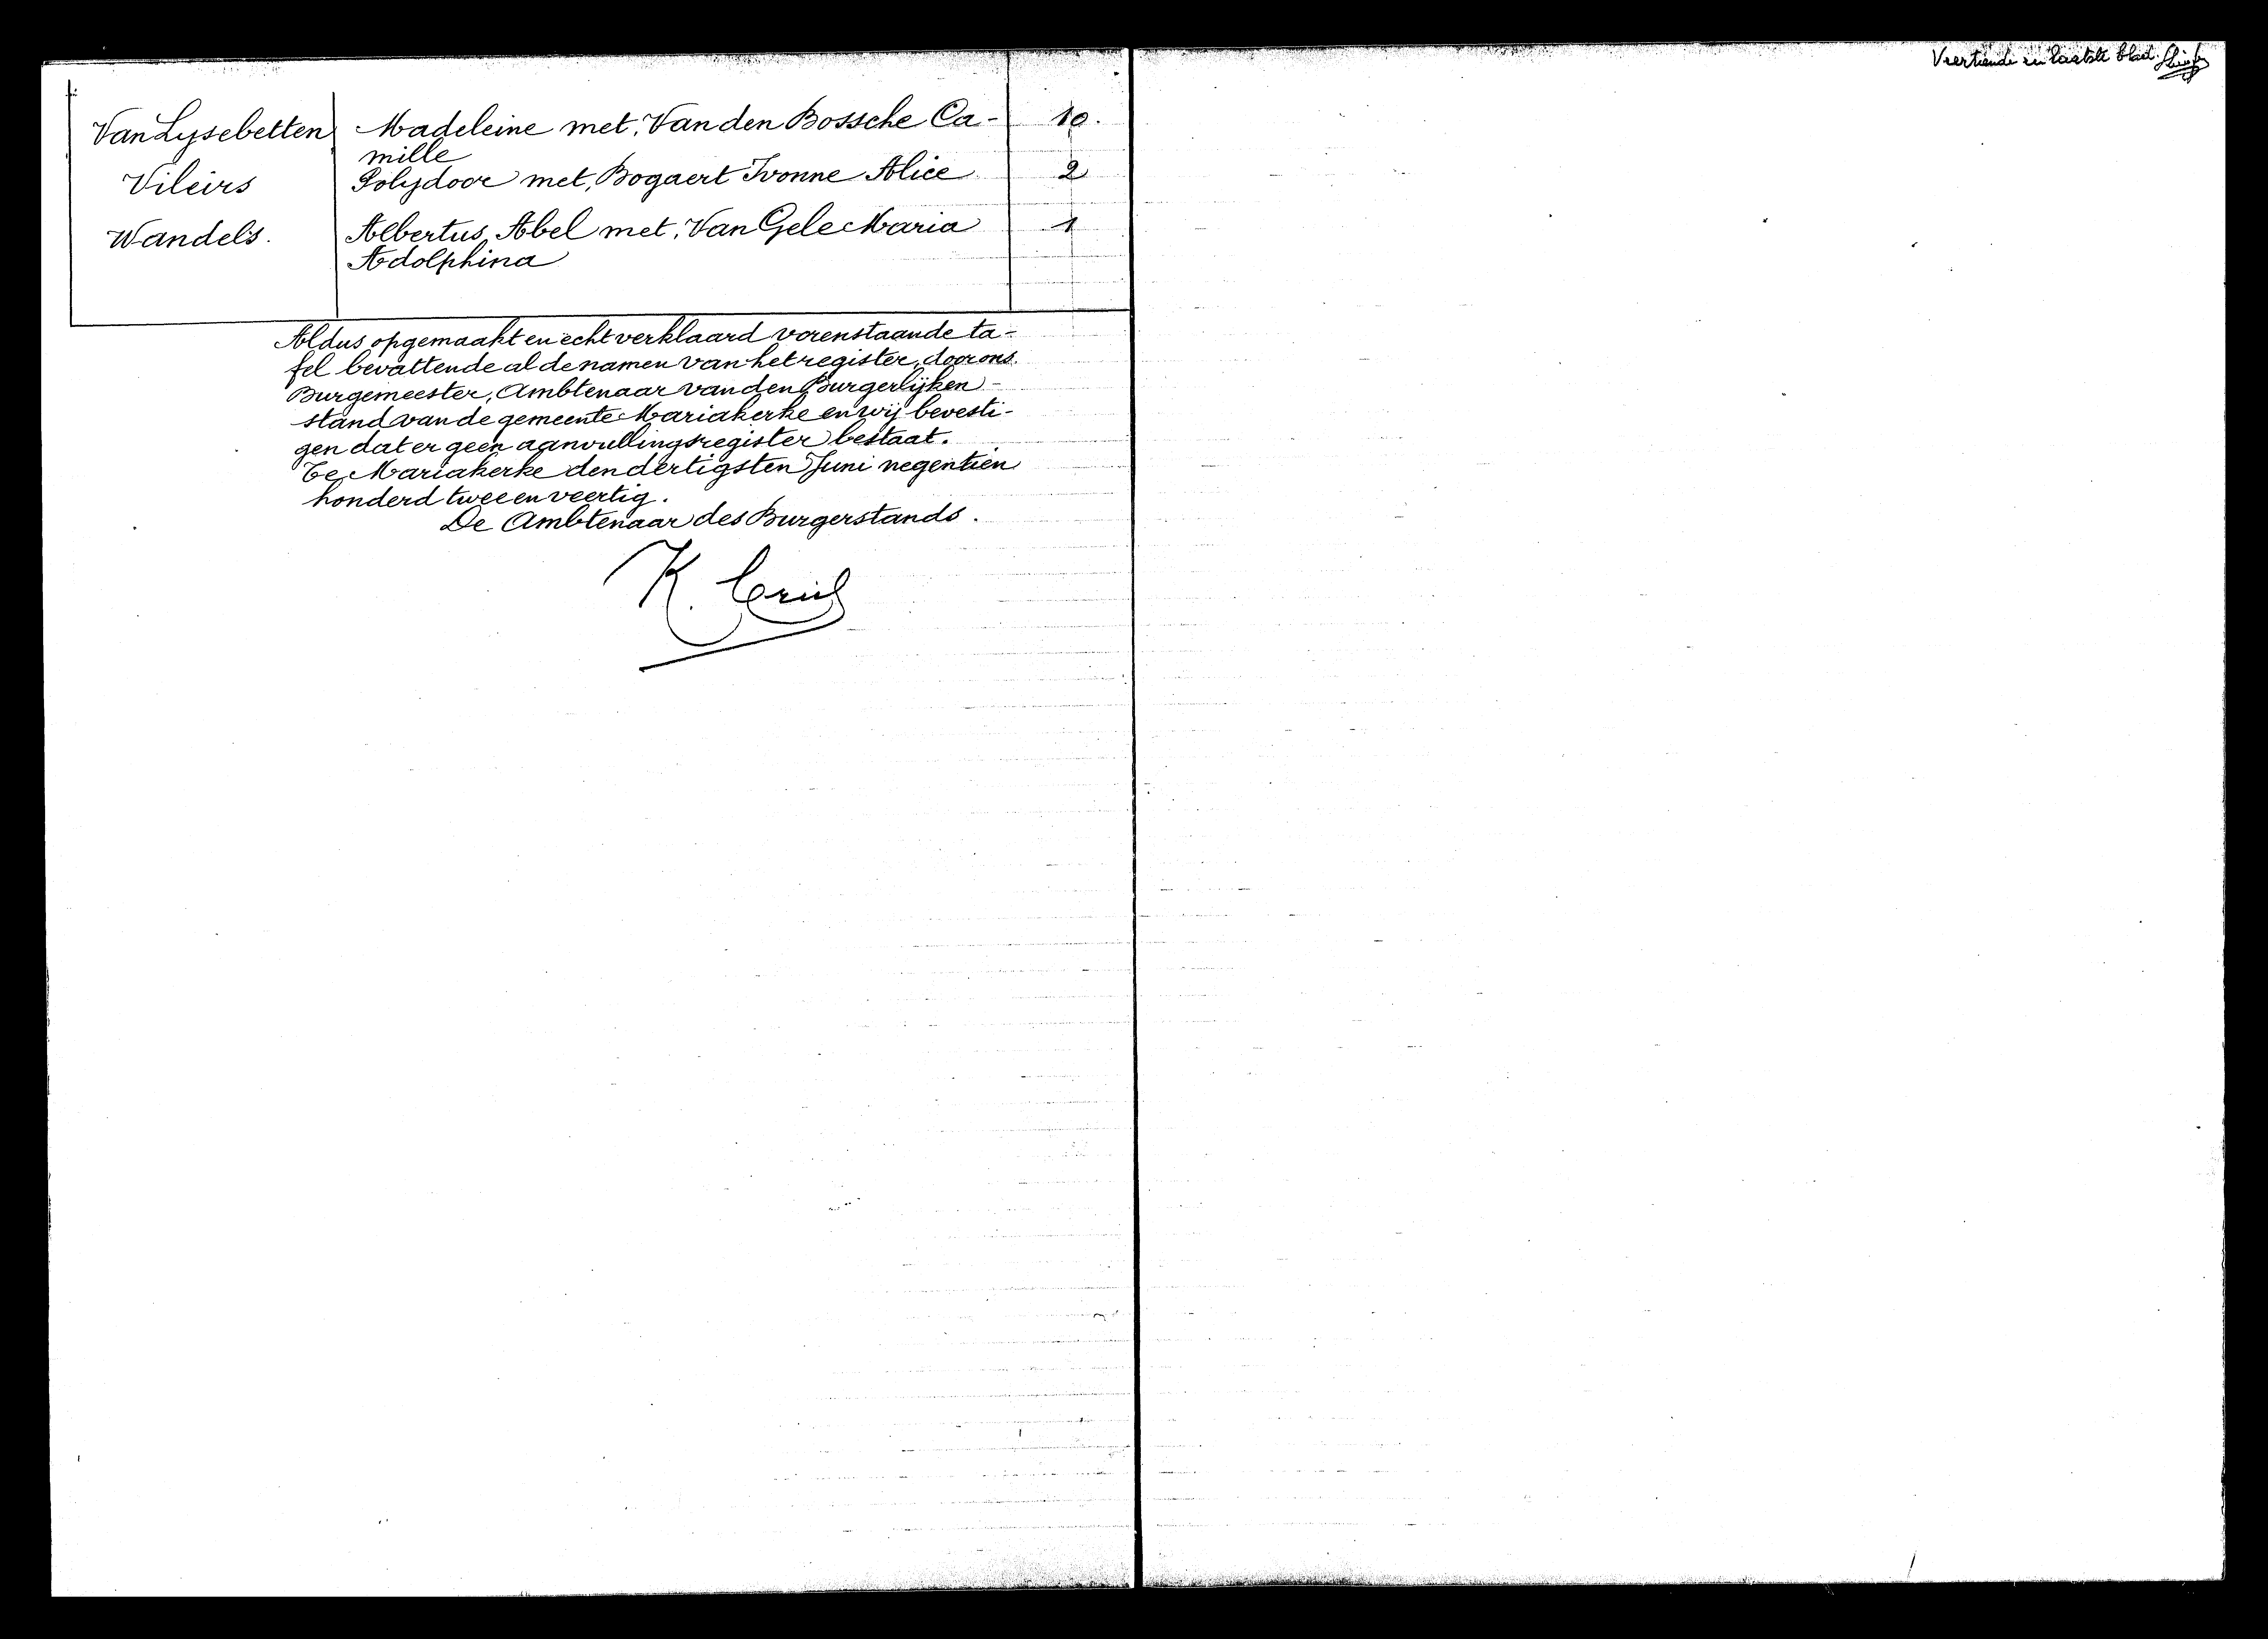 Van Lysebetten Madeleine met, Van den Bossche Ca- 10.
mille
Vileirs Polydoor met, Bogaert Ivonne Alice 2
Wandels. Albertus Abel met, Van Gele Maria 1
Adolphina
Aldus opgemaakt en echt verklaard vorenstaande ta-
fel bevattende al de namen van het register, door ons
Burgemeester, Ambtenaar van den Burgerlijken-
stand van de gemeente Mariakerke en wij bevesti-
gen dat er geen aanvullingsregister bestaat.
Te Mariakerke den dertigsten Juni negentien
honderd twee en veertig.
De Ambtenaar des Burgerstands.
K.
Veertiende en laatste blad.